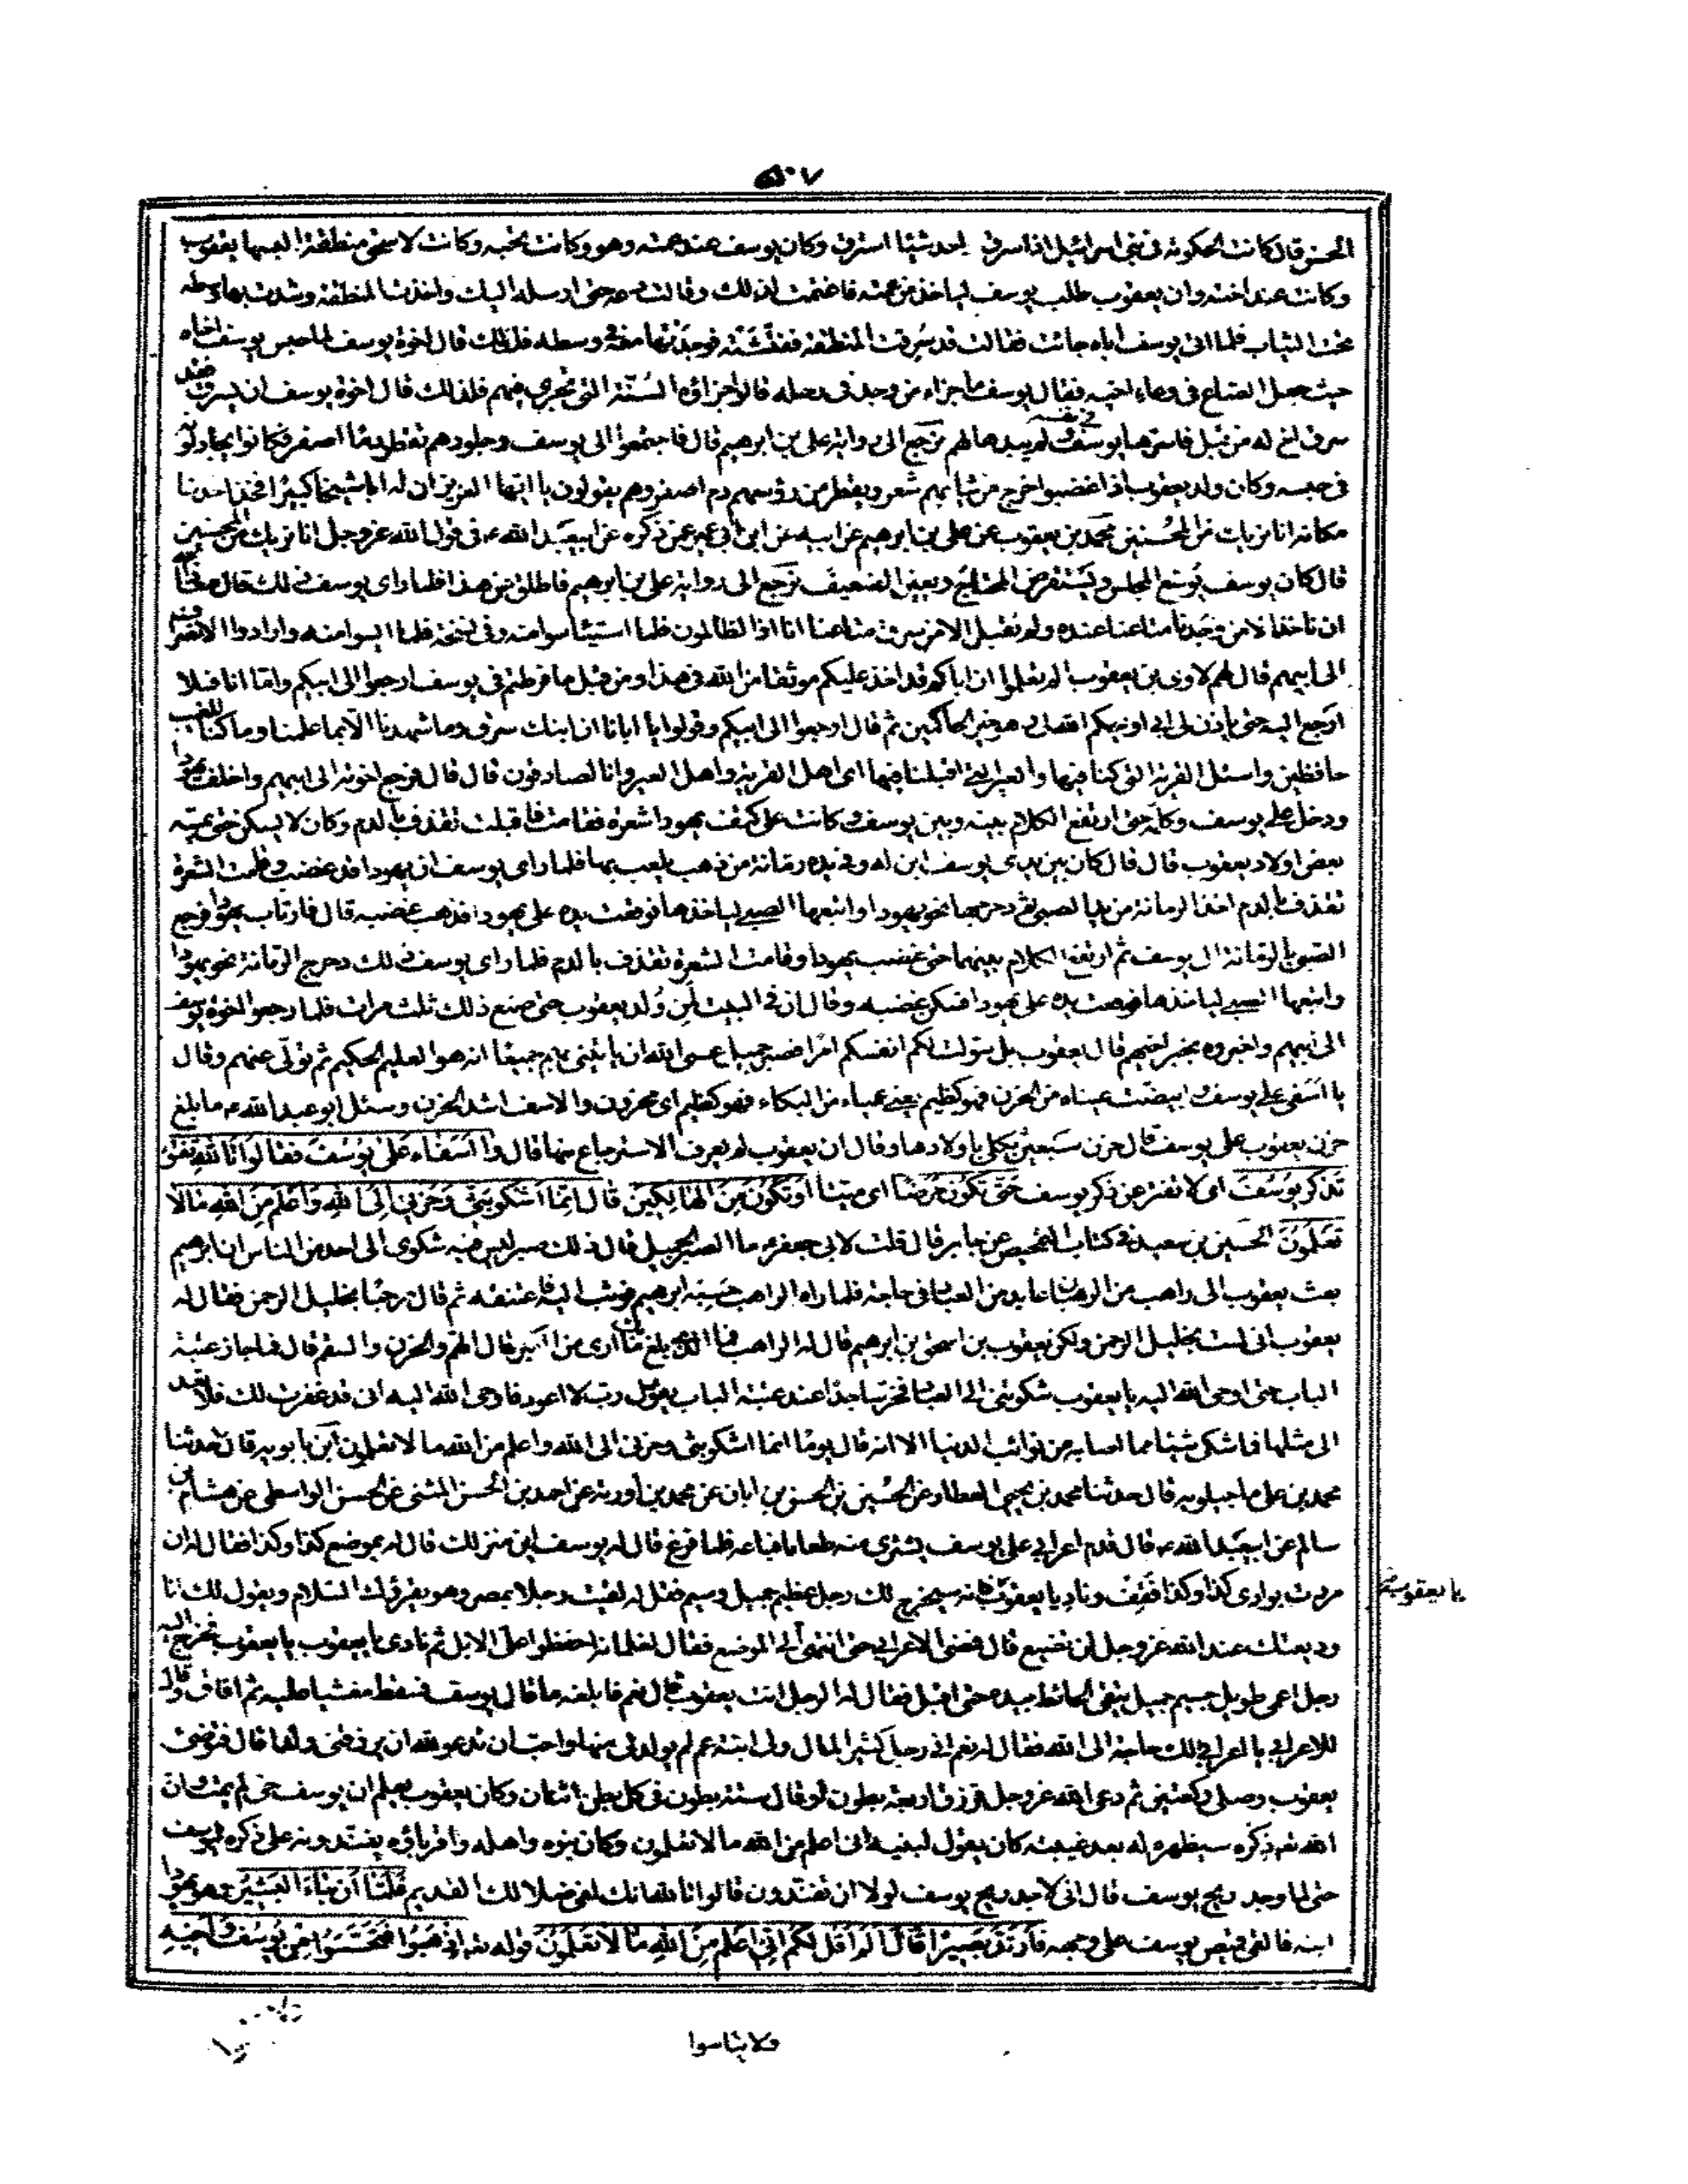 ٥٠٧
الحسن قال كانت الحكومة فى بنى اسرائيل اذا سرق احد شيئا استرق وكان يوسف عند عمته وهو وكانت تحبه وكانت لاسحق منطقة البسها يعقوب
وكانت عند اخته وان يعقوب طلب يوسف لياخذه من عمته فاغتمت لذلك وقالت دعه حتى ارسله اليك واخذت المنطقة وشدت بها وسطه
تحت الثياب فلما اتى يوسف اباه جائت فقالت قد سُرقت المنطقة ففتّشته فوجدتها معه فى وسطه فلذلك قال اخوة يوسف لما حبس يوسف اخاه
حيث جعل الصاع فى وعاء اخيه فقال يوسف ما جزاء من وجد فى رحله قالوا جزاؤه السُنّة التى تجرى فيهم فلذلك قال اخوة يوسف ان يسرق فقد
سرق اخ له من قبل فاسرها يوسف فى نفسه لم يبدها لهم نرجع الى رواية على بن ابرهيم قال فاجتمعوا الى يوسف وجلودهم تقطر دما اصفر فكانوا يجادلونه
فى حبسه وكان ولد يعقوب اذا غضبوا خرج من ثيابهم شعر ويقطر من رؤسهم دم اصفر وهم يقولون يا ايها العزيز ان له ابا شيخا كبيرا فخذ احدنا
مكانه انا نريك من المحسنين محمد بن يعقوب عن على بن ابرهيم عن ابيه عن ابن ابى عمير عمن ذكره عن ابيعبد الله ع فى قول الله عز وجل انا نريك من المحسنين
قال كان يوسف يُوسّع المجلس ويستقرض للمحتاج ويعين الضعيف نرجع الى رواية على بن ابرهيم فاطلق عن هذا فلما راى يوسف ذلك قال معاذ الله
ان ناخذ الا من وجدنا متاعنا عنده ولم نقل الا من سرق متاعنا انا اذا لظالمون فلما استيئاسوا منه وفى نسخة فلما ايسوا منه وارادوا الانصراف
الى ابيهم قال لهم لاوى بن يعقوب الم تعلموا ان اباكم قد اخذ عليكم موثقا من الله فى هذا ومن قبل ما فرطتم فى يوسف ارجعوا الى ابيكم واما انا فلا
ارجع اليه حتى ياذن لى ابى او يحكم الله لى وهو خير الحاكمين ثم قال ارجعوا الى ابيكم وقولوا يا ابانا ان ابنك سرق وما شهدنا الا بما علمنا وما كنا للغيب
حافظين واسئل القرية التى كنا فيها والعير التى اقبلنا فيها اى اهل القرية واهل العير وانا لصادقون قال قال فرجع اخوته الى ابيهم واخلف يهودا
ودخل على يوسف وكلّمه حتى ارتفع الكلام بينه وبين يوسف وكانت على كتف يهودا شعرة فقامت فاقبلت تقذف بالدم وكان لا يسكن حتى يمسه
بعض اولاد يعقوب قال فكان بين يدى يوسف ابن له وفى يده رمانة من ذهب يلعب بها فلما راى يوسف ان يهودا قد غضب وقامت الشعرة
تقذف بالدم اخذ الرمانة من يد الصبى ثم دحرجها نحو يهودا واتبعها الصبى لياخذها فوقعت يده على يهودا فذهب غضبه قال فارتاب يهودا ورجع
الصبى بالرمانة الى يوسف ثم ارتفع الكلام بينهما حتى غضب يهودا وقامت الشعرة تقذف بالدم فلما راى يوسف ذلك دحرج الرمانة نحو يهودا
واتبعها الصبى لياخذها فوقعت يده على يهودا فسكن غضبه وقال ان فى البيت لَمِن وُلد يعقوب حتى صنع ذلك ثلث مرات فلما رجعوا اخوة يوسف
الى ابيهم واخبروه بخبر اخيهم قال يعقوب بل سوّلت لكم انفسكم امرا فصبر جميل عسى الله ان ياتينى بهم جميعا انه هو العليم الحكيم ثم تولّى عنهم وقال
يا اسَفى على يوسف وابيضّت عيناه من الحزن فهو كظيم يعنى عمياء من البكاء فهو كظيم اى محزون والاسف اشد الحزن وسئل ابو عبد الله ع ما بلغ
حزن يعقوب على يوسف قال حزن سبعين ثكلى باولادها وقال ان يعقوب لم يعرف الاسترجاع فمنها قال وا اسفاه على يوسف فقالوا تالله تفتؤ
تذكر يوسف اى لا تفتر عن ذكر يوسف حتى تكون حرضا اى ميتا او تكون من الهالكين قال انما اشكو بثى وحزنى الى الله واعلم من الله ما لا
تعلمون الحسين بن سعيد فى كتاب التمحيص عن جابر قال قلت لابى جعفر ع ما الصبر الجميل قال ذلك صبر ليس فيه شكوى الى احد من الناس ان ابرهيم
بعث يعقوب الى راهب من الرهبان عابد من العباد فى حاجة فلما راه الراهب حسبه ابرهيم فوثب اليه فاعتنقه ثم قال مرحبا بخليل الرحمن فقال له
يعقوب انى لست بخليل الرحمن ولكن يعقوب بن اسحق بن ابرهيم قال له الراهب فما الذى بلغ بك ما ارى من الكبر قال الهم والحزن والسقم قال فما جاز عتبة
الباب حتى اوحى الله اليه يا يعقوب شكوتنى الى العباد فخر ساجدا عند عتبة الباب يقول رب لا اعود فاوحى الله اليه انى قد غفرت لك فلا تعد
الى مثلها فما شكى شيئا مما اصابه من نوائب الدنيا الا انه قال يوما انما اشكو بثى وحزنى الى الله واعلم من الله ما لا تعلمون ابن بابويه قال حدثنا
محمد بن على ماجيلويه قال حدثنا محمد بن يحيى العطار عن الحسين بن الحسن بن ابان عن محمد بن اورمة عن احمد بن الحسن الميثمى عن الحسن الواسطى عن هشام بن
سالم عن ابيعبد الله ع قال قدم اعرابى على يوسف يشترى منه طعاما فباعه فلما فرغ قال له يوسف اين منزلك قال له بموضع كذا وكذا فقال له ان
مررت بوادى كذا وكذا فقِف وناد يا يعقوب فانه سيخرج لك رجل عظيم جميل وسيم فقل له لقيت رجلا بمصر وهو يقرئك السلام ويقول لك ان
يا يعقوب
وديعتك عند الله عز وجل لن تضيع قال فمضى الاعرابى حتى انتهى الى الموضع فقال لغلمانه احفظوا على الابل ثم نادى يا يعقوب يا يعقوب فخرج اليه
رجل اعمى طويل جسيم جميل يتقى الحائط بيده حتى اقبل فقال له الرجل انت يعقوب قال نعم فابلغه ما قال يوسف فسقط مغشيا عليه ثم افاق وقال
للاعرابى يا اعرابى الك حاجة الى الله فقال له نعم انى رجل كثير المال ولى ابنة عم لم يولد لى منها واحب ان تدعو الله ان يرزقنى ولدا قال فتوضى
يعقوب وصلى ركعتين ثم دعى الله عز وجل فرزق اربعة بطون او قال ستة بطون فى كل بطن اثنان وكان يعقوب يعلم ان يوسف حى لم يمت وان
الله تعم ذكره سيظهره له بعد غيبته كان يقول لبنيه انى اعلم من الله ما لا تعلمون وكان بنوه واهله واقرباؤه يفندونه على ذكره ليوسف
حتى لما وجد ريح يوسف قال انى لاجد ريح يوسف لولا ان تفندون قالوا تالله انك لفى ضلالك القديم فلما ان جاء البشير وهو يهودا
ابنه فالقى قميص يوسف على وجهه فارتد بصيرا قال الم اقل لكم انى اعلم من الله ما لا تعلمون قوله تعم اذهبوا فتحسسوا من يوسف واخيه
ولا تياسوا